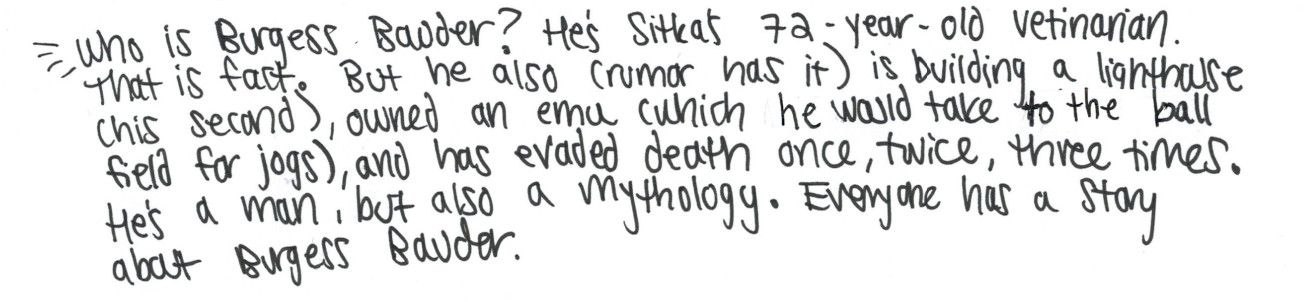 Who is Burgess Bauder? He's Sitka's 72-year-old vetinarian.
That is fact. But he also (rumor has it) is building a lighthouse
(his second), owned an emu (which he would take to the ball
field for jogs), and has evaded death once, twice, three times.
He's a man, but also a mythology. Everyone has a story
about Burgess Bauder.